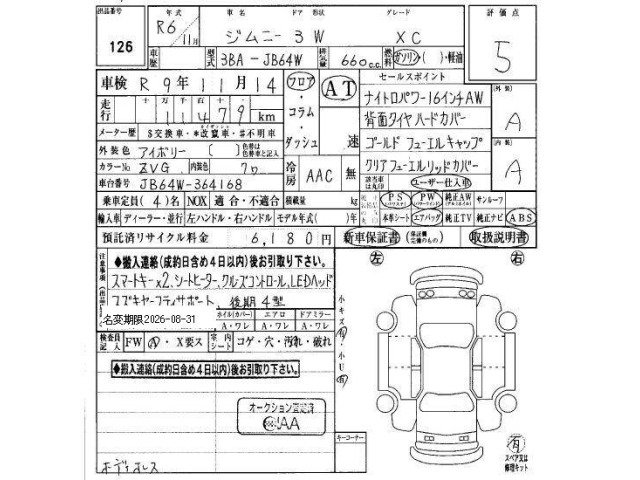 出品番号
126
年式 R6/11月
車歴
車名 ジムニー ドア 3 形状 W
グレード XC
評価点 5
型式 3BA-JB64W
排気量 660 c.c.
燃料 ガソリン・( )・軽油
車検 R 9年 11月 14
フロア・コラム・ダッシュ
AT
速
セールスポイント
ナイトロパワー16インチAW
背面タイヤハードカバー
ゴールド フューエルキャップ
クリアフューエルリッドカバー
(外装) A
(内装) A
走行 十万 万 千 百 十
11479 km
メーター歴 $交換車・*改竄車・#不明車
外装色 アイボリー ( ) 色替は色替車と記入
カラーNo ZVG 内装色 クロ
冷房 AAC 無
該当車は丸印 ユーザー仕入車
車台番号 JB64W-364168
乗車定員 (4) 名 NOX 適合・不適合 積載量 kg
PS PW 純正AW サンルーフ
輸入車 ディーラー・並行 左ハンドル・右ハンドル モデル年式( )年
本革シート エアバッグ 純正TV 純正ナビ ABS
預託済リサイクル料金 6,180円
新車保証書 (保証欄完備のもの) 取扱説明書
左 右
注意事項
◆搬入連絡(成約日含め4日以内)後お引取り下さい。
スマートキー×2,シートヒーター,クルーズコントロール,LEDヘッド
スズキセーフティサポート、後期4型
名変期限2026-08-31
ホイル(カバー) エアロ ドアミラー
A・ワレ A・ワレ A・ワレ
検査員記入 FW A・X要ス 室内シート コゲ・穴・汚れ・破れ
小キズ有
小U有
◆搬入連絡(成約日含め4日以内)後お引取り下さい。
オークション査定済
JAA
キーコーナー
ボディオレス
有
スペア又は修理キット